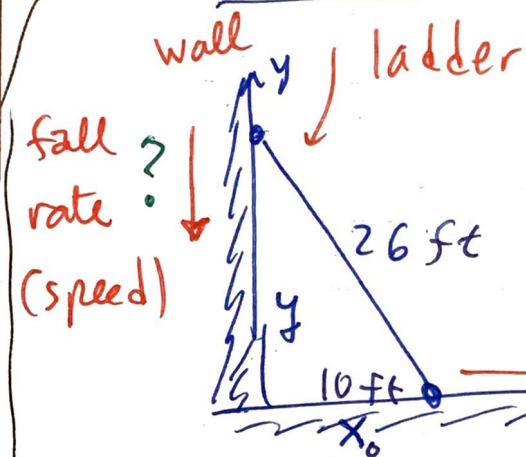 wall
y
ladder
fall
rate
?
(speed)
26 ft
y
10 ft
x₀